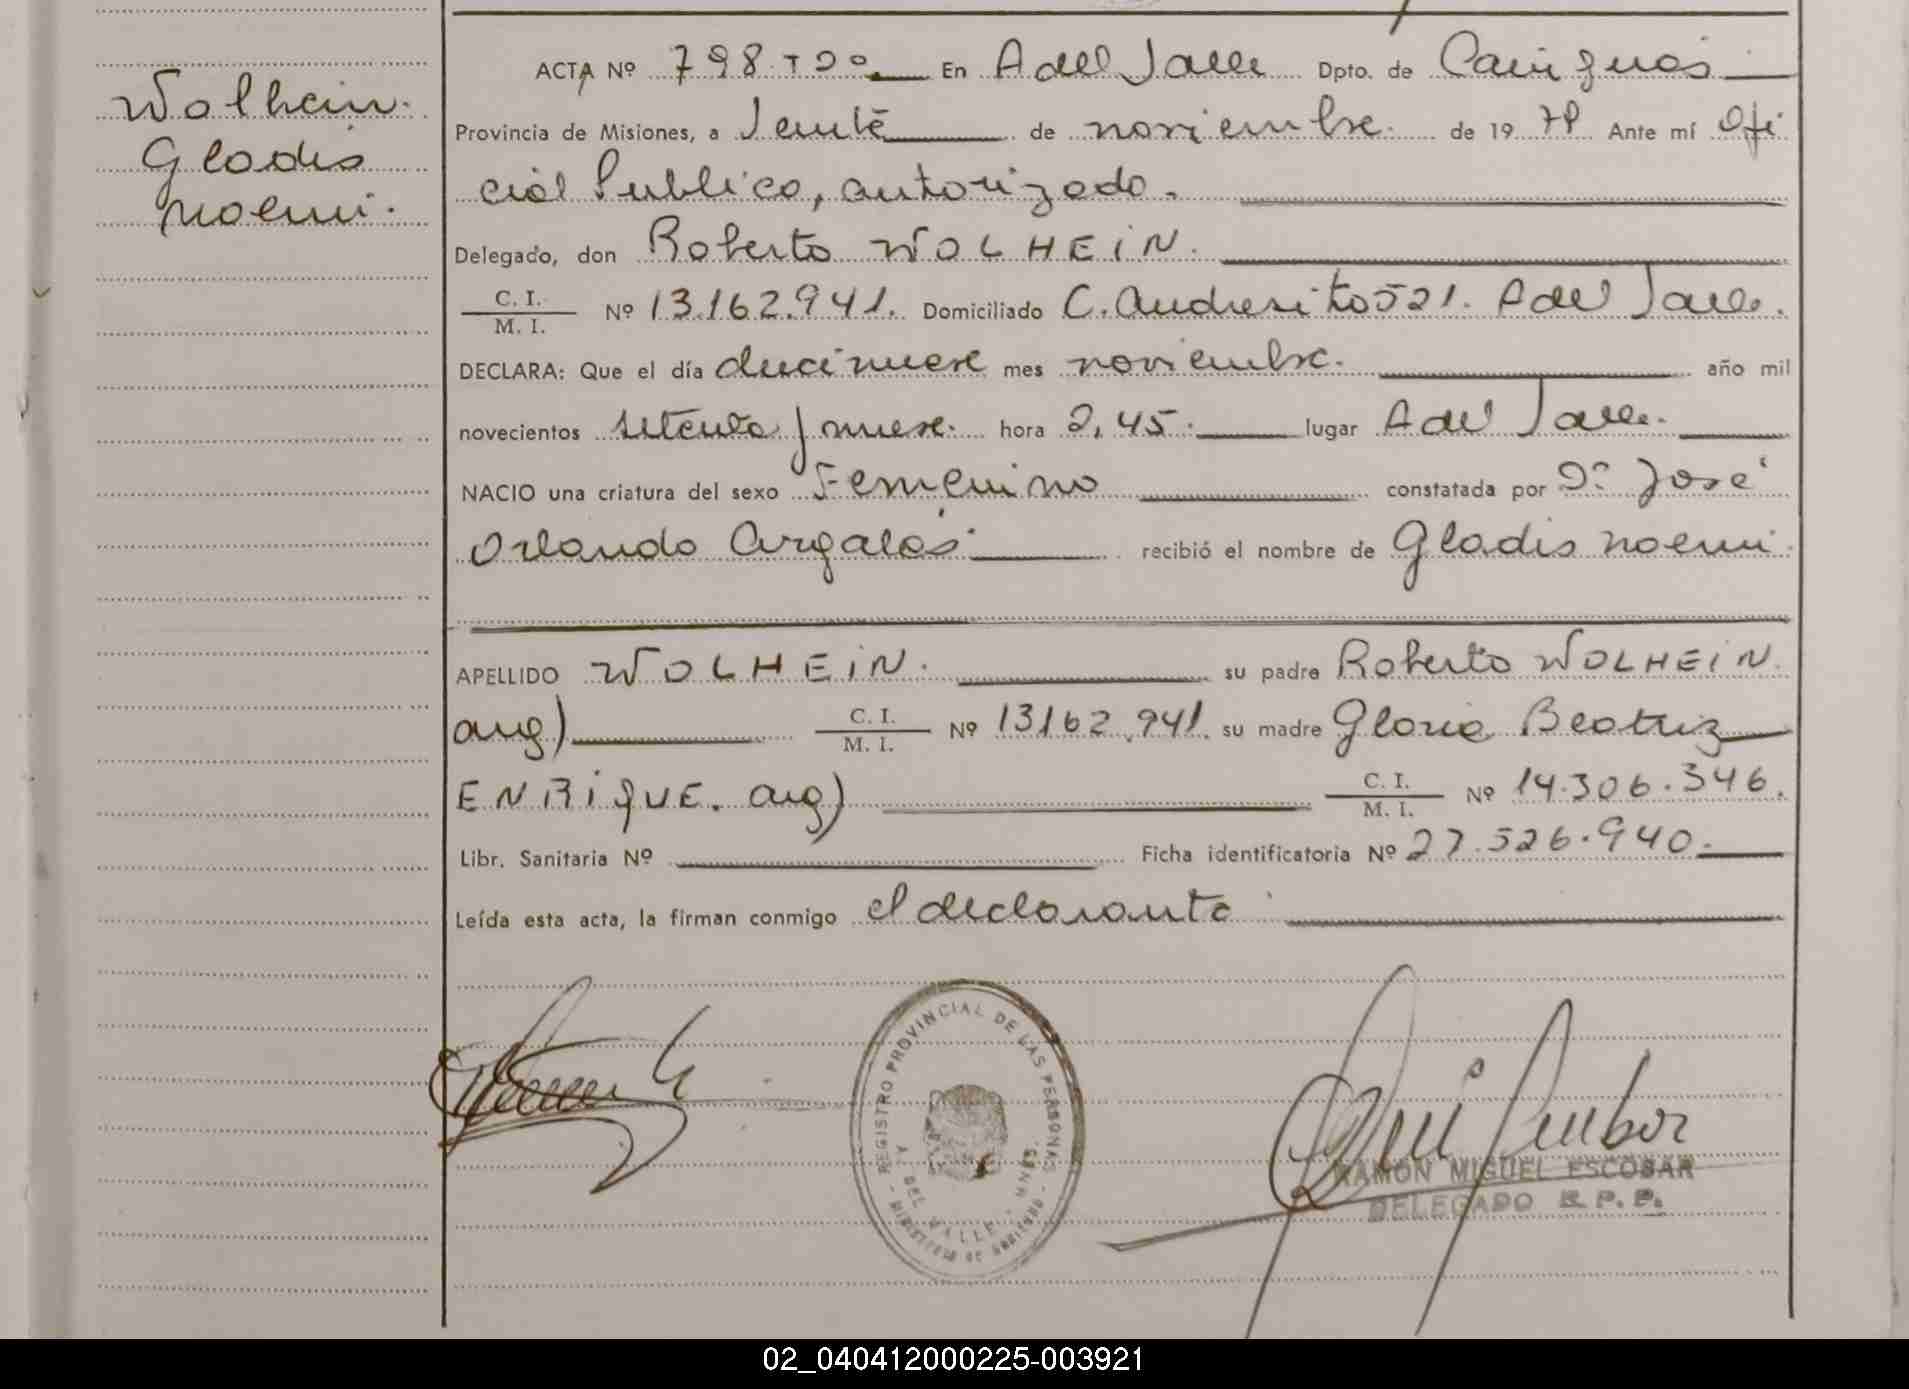 Wolhein.
Gladis
noemi.
ACTA Nº 798 - Tº 2º En A del Valle Dpto. de Cainguas
Provincia de Misiones, a Veinte de noviembre. de 19 79 Ante mí Ofi
cial Publico, autorizado.
Delegado, don Roberto WOLHEiN.
C. I. / M. I. Nº 13.162.941. Domiciliado C. Andresito 521. A del Valle.
DECLARA: Que el día diecinueve mes noviembre. año mil
novecientos setenta y nueve. hora 2,45. lugar A del Valle.
NACIO una criatura del sexo Femenino constatada por Dr. José
Orlando Argalás. recibió el nombre de Gladis noemi.
APELLIDO WOLHEiN. su padre Roberto WOLHEiN.
arg) C. I. / M. I. Nº 13162.941. su madre Gloria Beatriz
ENRiqUE. arg) C. I. / M. I. Nº 14.306.346.
Libr. Sanitaria Nº Ficha identificatoria Nº 27.526.940.
Leída esta acta, la firman conmigo el declarante
REGISTRO PROVINCIAL DE LAS PERSONAS
A DEL VALLE - MNES.
MINISTERIO DE GOBIERNO
RAMON MIGUEL ESCOBAR
DELEGADO R. P. P.
02_040412000225-003921